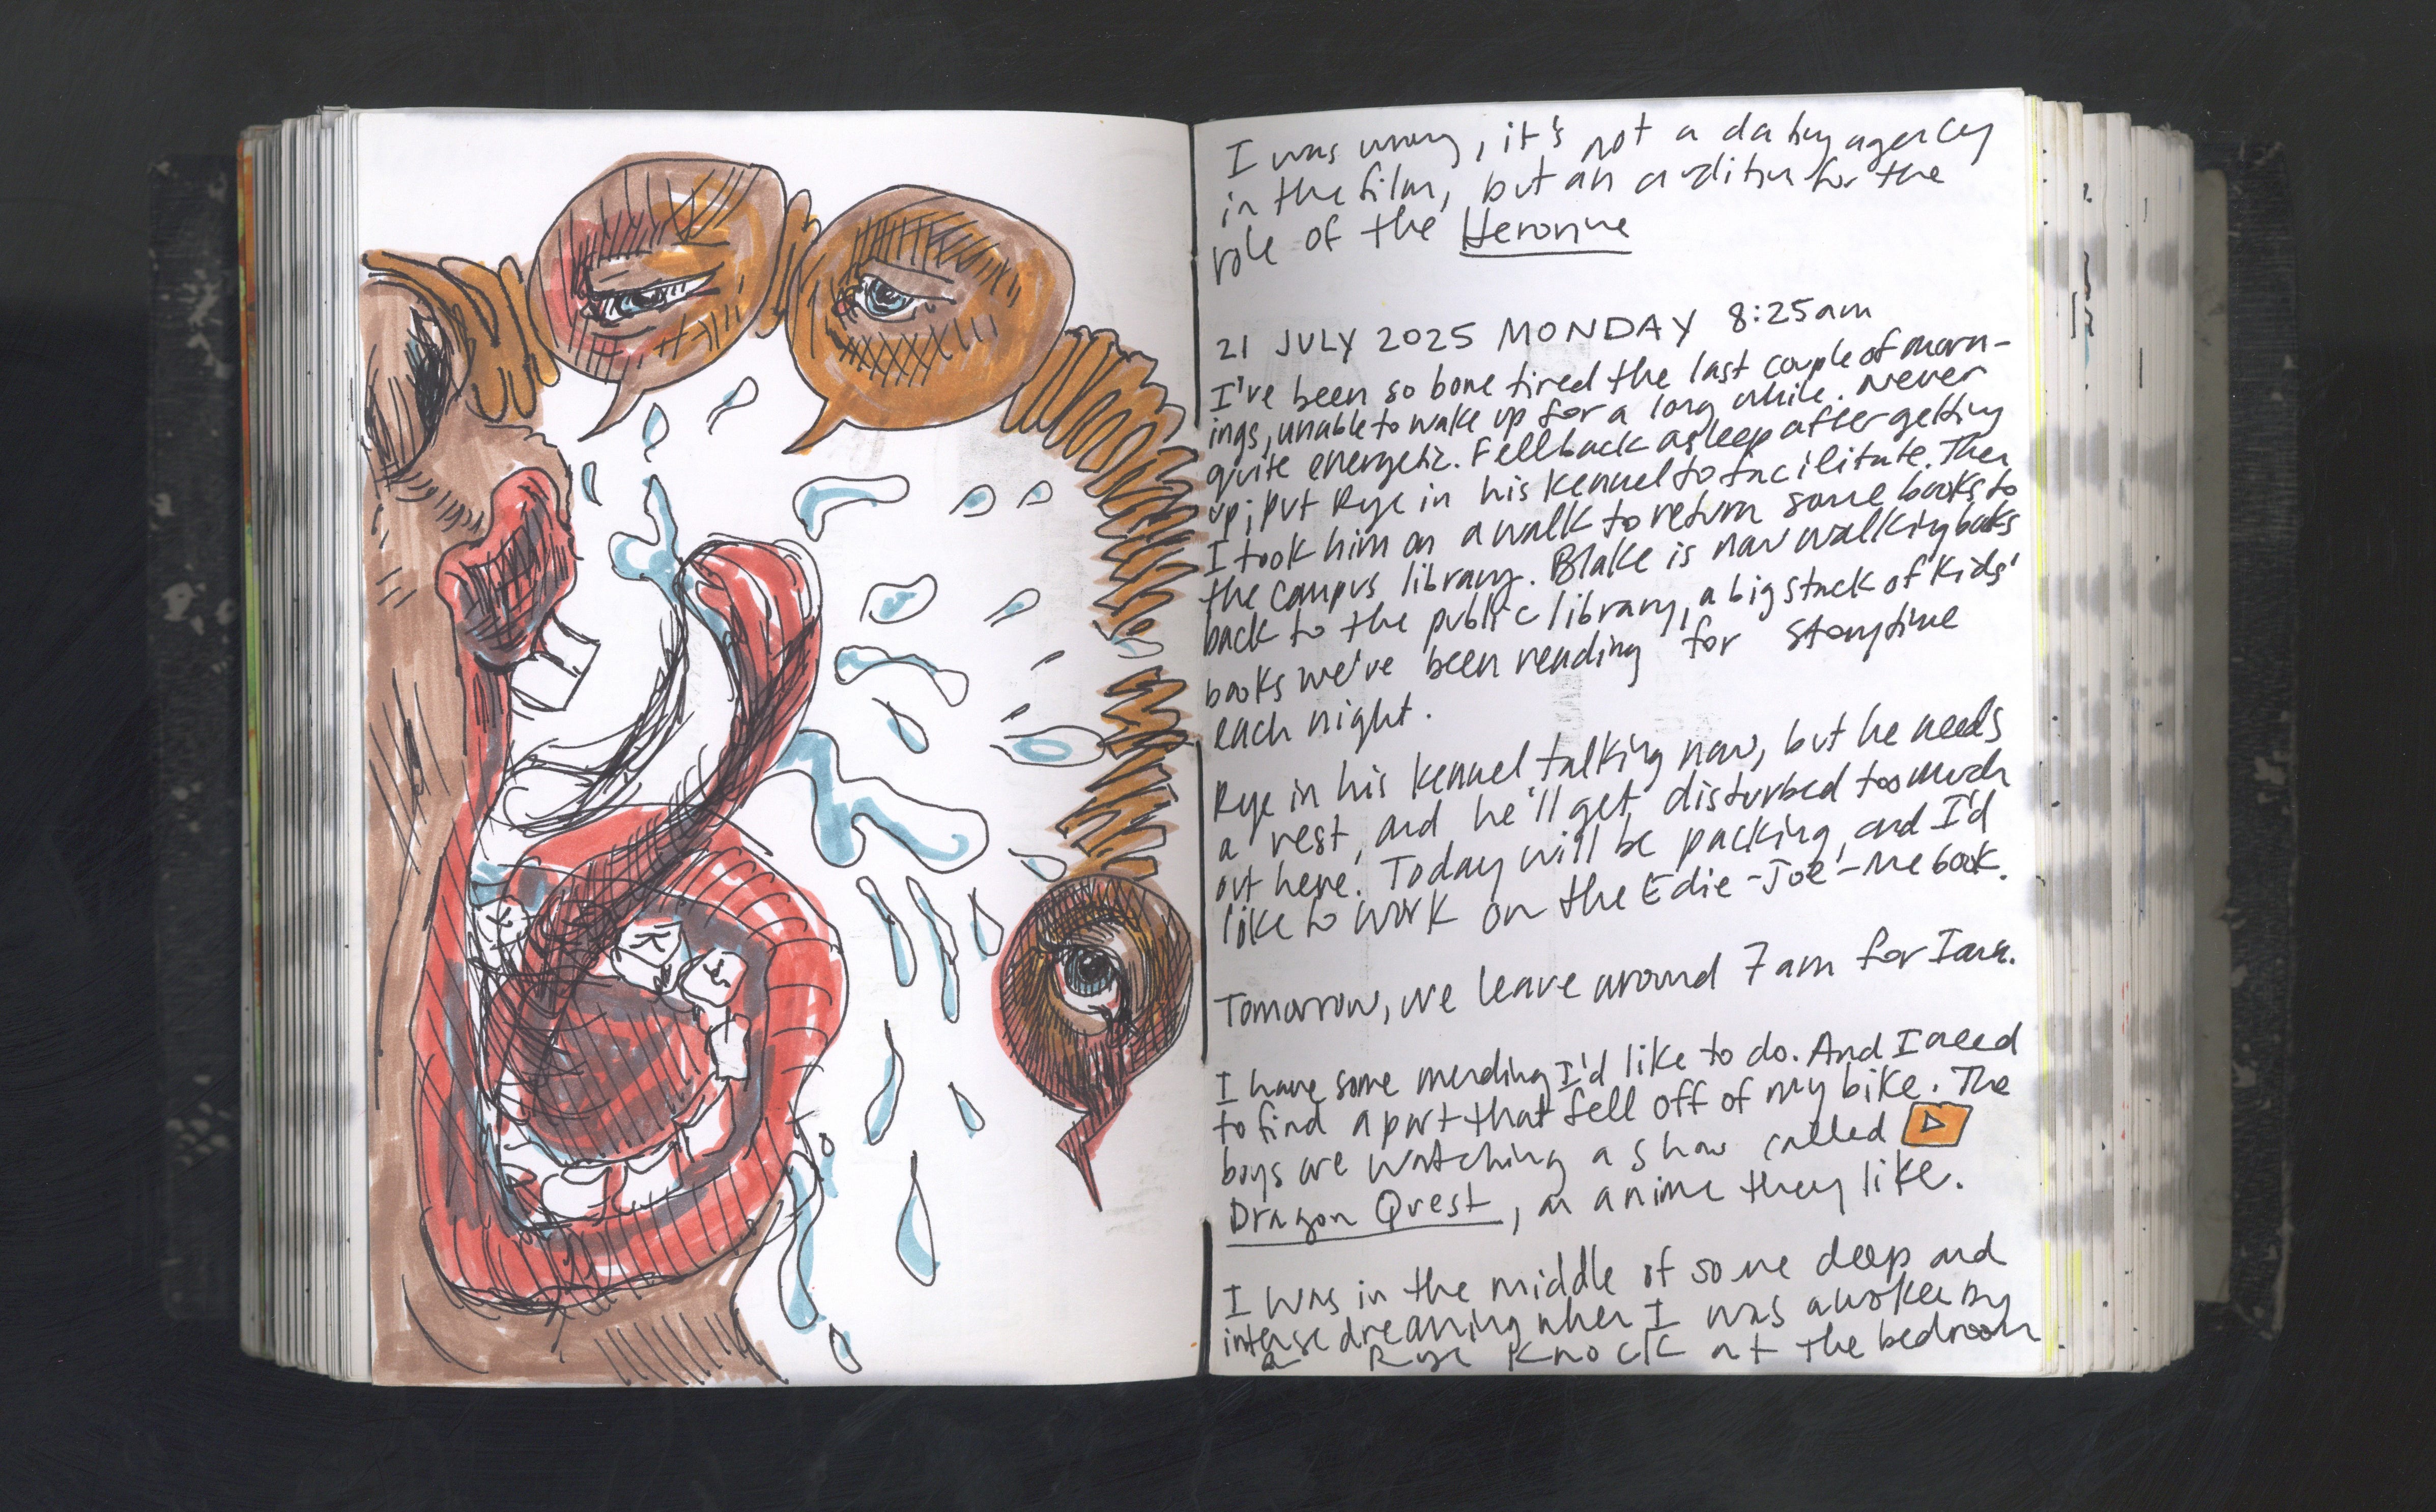 I was wrong, it's not a dating agency
in the film, but an audition for the
role of the Heronine
21 JULY 2025 MONDAY 8:25am
I've been so bone tired the last couple of morn-
ings, unable to wake up for a long while. Never
quite energetic. Fell back asleep after getting
up; put Rye in his kennel to facilitate. Then
I took him on a walk to return some books to
the campus library. Blake is now walking books
back to the public library, a big stack of kids'
books we've been reading for storytime
each night.
Rye in his kennel talking now, but he needs
a rest, and he'll get disturbed too much
out here. Today will be packing, and I'd
like to work on the Edie-Joe-Me book.
Tomorrow, we leave around 7am for Iowa.
I have some mending I'd like to do. And I need
to find a part that fell off of my bike. The
boys are watching a show called
Dragon Quest, an anime they like.
I was in the middle of some deep and
intense dreaming when I was awoken by
a Rye knock at the bedroom